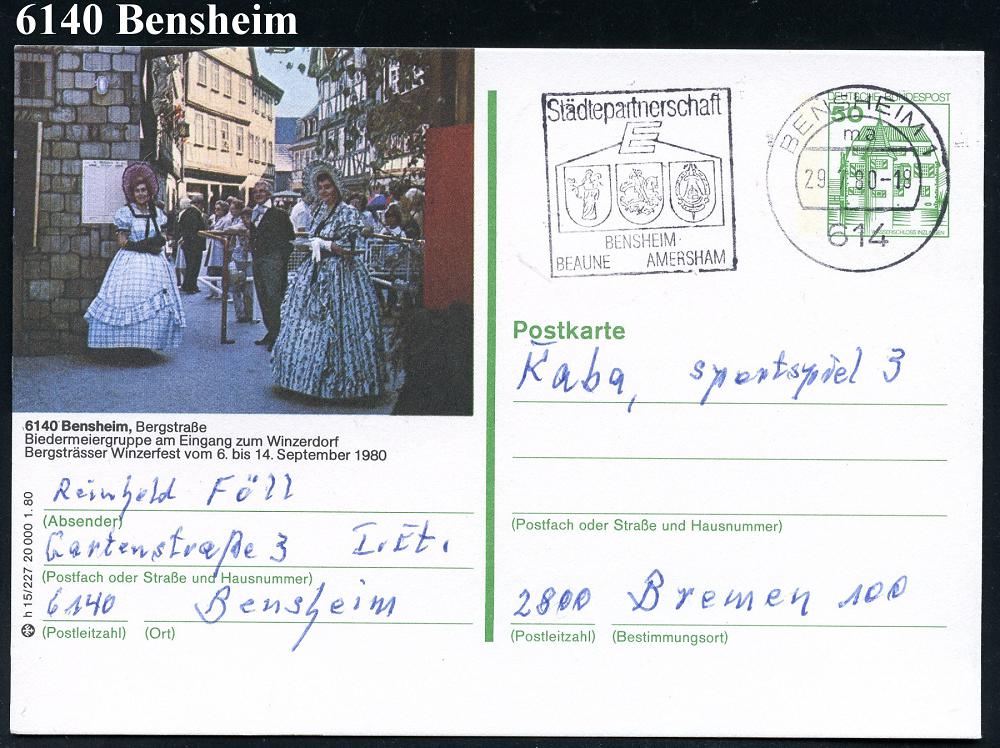 6140 Bensheim
Städtepartnerschaft
E
BENSHEIM·
BEAUNE AMERSHAM
DEUTSCHE BUNDESPOST
50
WASSERSCHLOSS INZLINGEN
BENSHEIM 1
ma
80-18
614
6140 Bensheim, Bergstraße
Biedermeiergruppe am Eingang zum Winzerdorf
Bergsträsser Winzerfest vom 6. bis 14. September 1980
Reinhold Föll
(Absender)
Gartenstraße 3 I. Et.
(Postfach oder Straße und Hausnummer)
6140 Bensheim
(Postleitzahl) (Ort)
h 15/227 20 000 1. 80
Postkarte
Kaba, sportspiel 3
(Postfach oder Straße und Hausnummer)
2800 Bremen 100
(Postleitzahl) (Bestimmungsort)